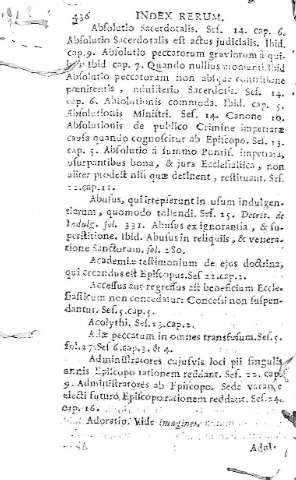 436 INDEX RERUM.
Absolutio Sacerdotalis. Sess. 14. cap. 6.
Absolutio Sacerdotalis est actus judicialis. Ibid.
cap. 9. Absolutio peccatorum graviorum à qui-
Ibid cap. 7. Quando nullius momenti. Ibid
Absolutio peccatorum non absque contritione
pœnitentis, ministerio Sacerdotis. Sess. 14.
cap. 6. Absolutionis commoda. Ibid. cap. 5.
Absolutionis Ministri. Sef. 14. Canone 10.
Absolutionis de publico Crimine impetratæ
causa quando cognoscitur ab Episcopo. Sef. 13.
cap. 5. Absolutio à summo Pontif. impetrata,
usurpantibus bona, & jura Ecclesiastica, non
aliter prodest nisi quæ detinent, restituant. Ses.
22. cap. 11.
Abusus, qui irrepserunt in usum indulgen-
tiarum, quomodo tollendi. Sef. 25. Decret. de
Indulg. fol. 331. Abusus ex ignorantia, & su-
perstitione. Ibid. Abusus in reliquiis, & venera-
tione Sanctorum. fol. 280.
Academiæ testimonium de ejus doctrina,
qui creandus est Episcopus. Sef 22. cap. 2.
Accessus aut regressus ad beneficium Eccle-
siasticum non concedatur: Concessi non suspen-
dantur. Sef. 5. cap. 5.
Acolythi. Sef. 23. cap. 2.
Adæ peccatum in omnes transfusum. Sef. 5.
fol. 27. Sef 6. cap. 3. & 4.
Administratores cujusvis loci pii singulis
annis Episcopo rationem reddant. Sef. 22. cap.
9. Administratores ab Episcopo. Sede vacante
electi futuro Episcopo rationem reddant. Sef. 24.
cap. 16.
Adoratio. Vide imagines.
Adul-